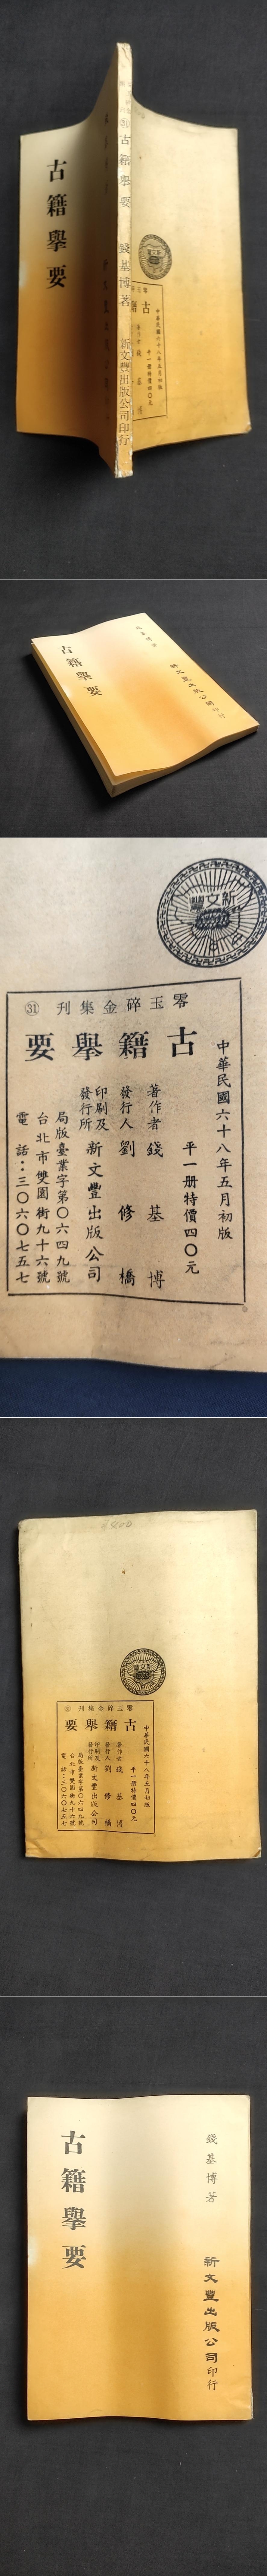 古籍舉要
㉛
古籍舉要
錢基博著
新文豐出版公司印行
中華民國六十八年五月初版
平一册特價四〇元
古籍舉要
錢基博著
新文豐出版公司印行
新文豐
零玉碎金集刊 ㉛
古籍舉要
中華民國六十八年五月初版
平一册特價四〇元
著作者 錢基博
發行人 劉修橋
印刷及發行所 新文豐出版公司
局版臺業字第〇六四九號
台北市雙園街九十六號
電話：三〇六〇七五七
新文豐
零玉碎金集刊 ㉛
古籍舉要
中華民國六十八年五月初版
平一册特價四〇元
著作者 錢基博
發行人 劉修橋
印刷及發行所 新文豐出版公司
局版臺業字第〇六四九號
台北市雙園街九十六號
電話：三〇六〇七五七
錢基博著
新文豐出版公司印行
古籍舉要